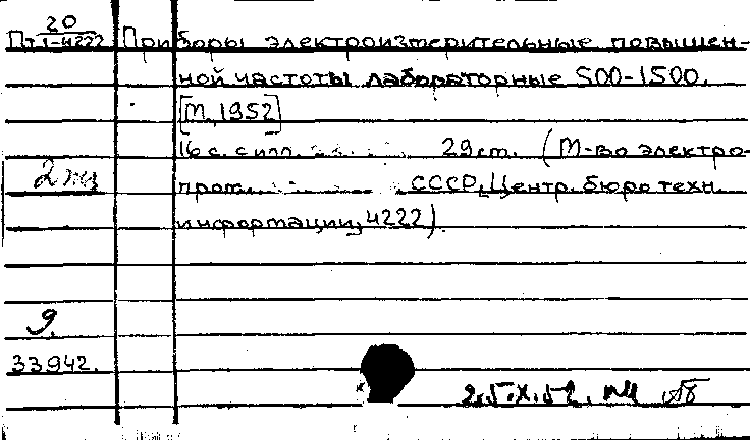 20
Пт 1-4222 Приборы электроизмерительные повышен-
ной частоты лабораторные 500-1500.
[М, 1952]
16 с. с илл. 29 cm. (М-во электро-
пром. СССР, Центр. бюро техн.
2
информации, 4222).
9.
33942.